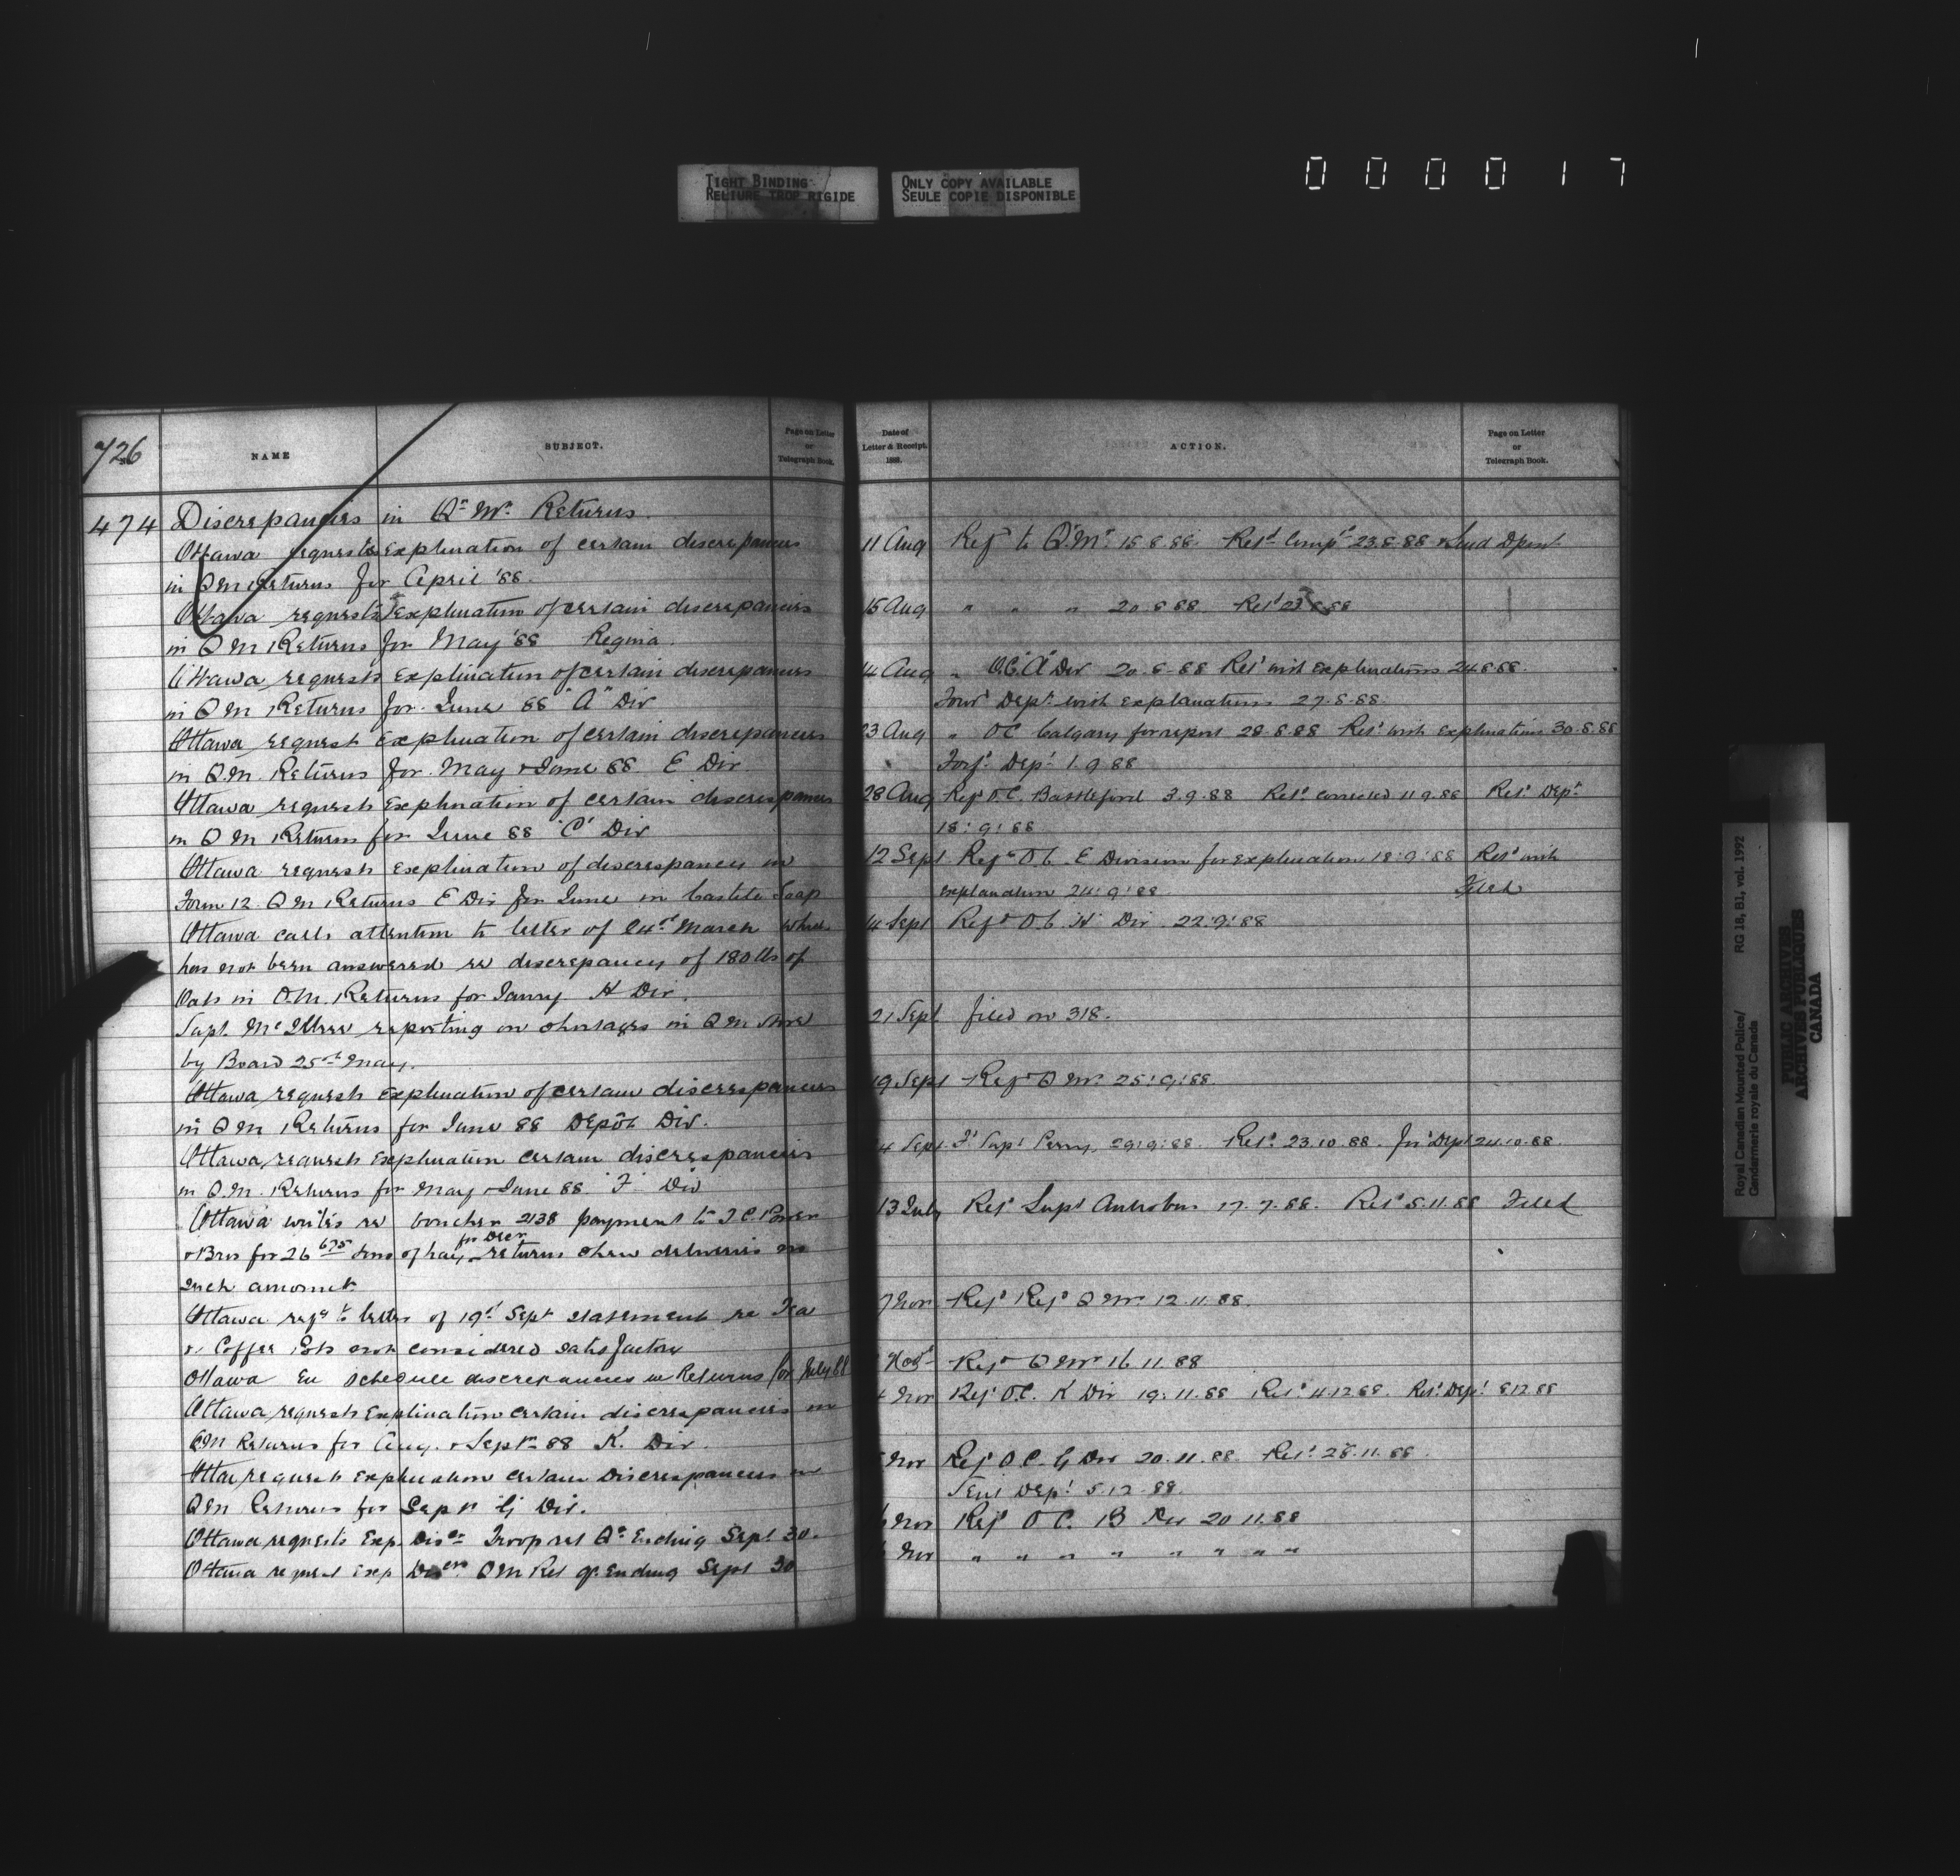 TIGHT BINDING
RELIURE TROP RIGIDE
ONLY COPY AVAILABLE
SEULE COPIE DISPONIBLE
000017
726
NAME
SUBJECT.
Page on Letter
or
Telegraph Book.
474 Discrepancies in Qr Mr Returns.
Ottawa requests explination of certain discrepancies
in QM Returns for April '88.
Ottawa requests Explination of certain discrepancies
in QM Returns for May '88 Regina.
Ottawa requests explination of certain discrepancies
in QM Returns for June 88 "A" Div
Ottawa request explination of certain discrepancies
in Q.M. Returns for May & June 88. E Div
Ottawa requests explination of certain discrepancies
in QM Returns for June 88 "C" Div
Ottawa requests explination of discrepancies in
Form 12 QM Returns E Div for June in Castile Soap
Ottawa calls attention to letter of 24th March which
has not been answered re discrepancy of 180 lbs of
Oats in Q.M. Returns for Janry. H Div.
Supt. McIllree reporting on shortages in QM Store
by Board 25th May.
Ottawa requests explination of certain discrepancies
in QM Returns for June 88 Depôt Div.
Ottawa requests Explination certain discrepancies
in Q.M. Returns for May & June 88. "F" Div
Ottawa writes re voucher 2138 payment to I.C. Power
& Bros for 26 675 tons of hay for Decr returns show deliveries no
such amount.
Ottawa refg to letter of 19th Sept statement re Tea
& Coffee Pots not considered satisfactory
Ottawa En schedule discrepancies in Returns for July 88
Ottawa requests Explination certain discrepancies in
QM Returns for Aug. & Septr 88 K. Div.
Ottaw request explination certain Discrepancies in
QM Returns for Septr G Div.
Ottawa requests Exp. Discr Troop ret Qr Ending Sept 30.
Ottawa request Exp QM Ret qr Ending Sept 30
Date of
Letter & Receipt.
188 .
ACTION.
Page on Letter
or
Telegraph Book.
11 Aug Refd to Q.Mr. 15.8.88. Retd Compd 23.8.88 & Send Dpart
15 Aug " " " 20.8.88 Retd 23.8.88
14 Aug " O.C. "A" Div 20.8.88 Retd with explinations 24.8.88.
Forwd Dept. with explanations 27.8.88.
23 Aug " OC Calgary for report 28.8.88 Retd with explinations 30.8.88
Forfd Dept 1.9.88
28 Aug Refd O.C. Battleford 3.9.88 Retd. corrected 11.9.88 Retd Dept
18:9:88
12 Sept Refd O.C. E Division for explination 18:9:88 Retd with
explanation 24:9:88. Filed
14 Sept Refd O.C. H Div 22:9:88
21 Sept filed on 318.
19 Sept Refd QMr. 25:9:88.
4 Sept Fd Supt Perry, 29:9:88. Retd. 23.10.88. for Dept 24.10.88.
13 July Refd Supt Antrobus 17.7.88. Retd 5.11.88 Filed
7 Nov Refd Refd QMr 12.11.88.
Novr Refd QMr 16.11.88
4 Nov Refd O.C. K Div 19.11.88 Retd 4.12.88. Retd Dept 8.12.88
Nov Refd O.C. G Div 20.11.88. Retd. 28.11.88.
Sent Dept 5.12.88.
Nov Refd O.C. B Div 20.11.88
Nov " " " " " " " "
Royal Canadian Mounted Police/ RG 18, B1, vol. 1992
Gendarmerie royale du Canada
PUBLIC ARCHIVES
ARCHIVES PUBLIQUES
CANADA